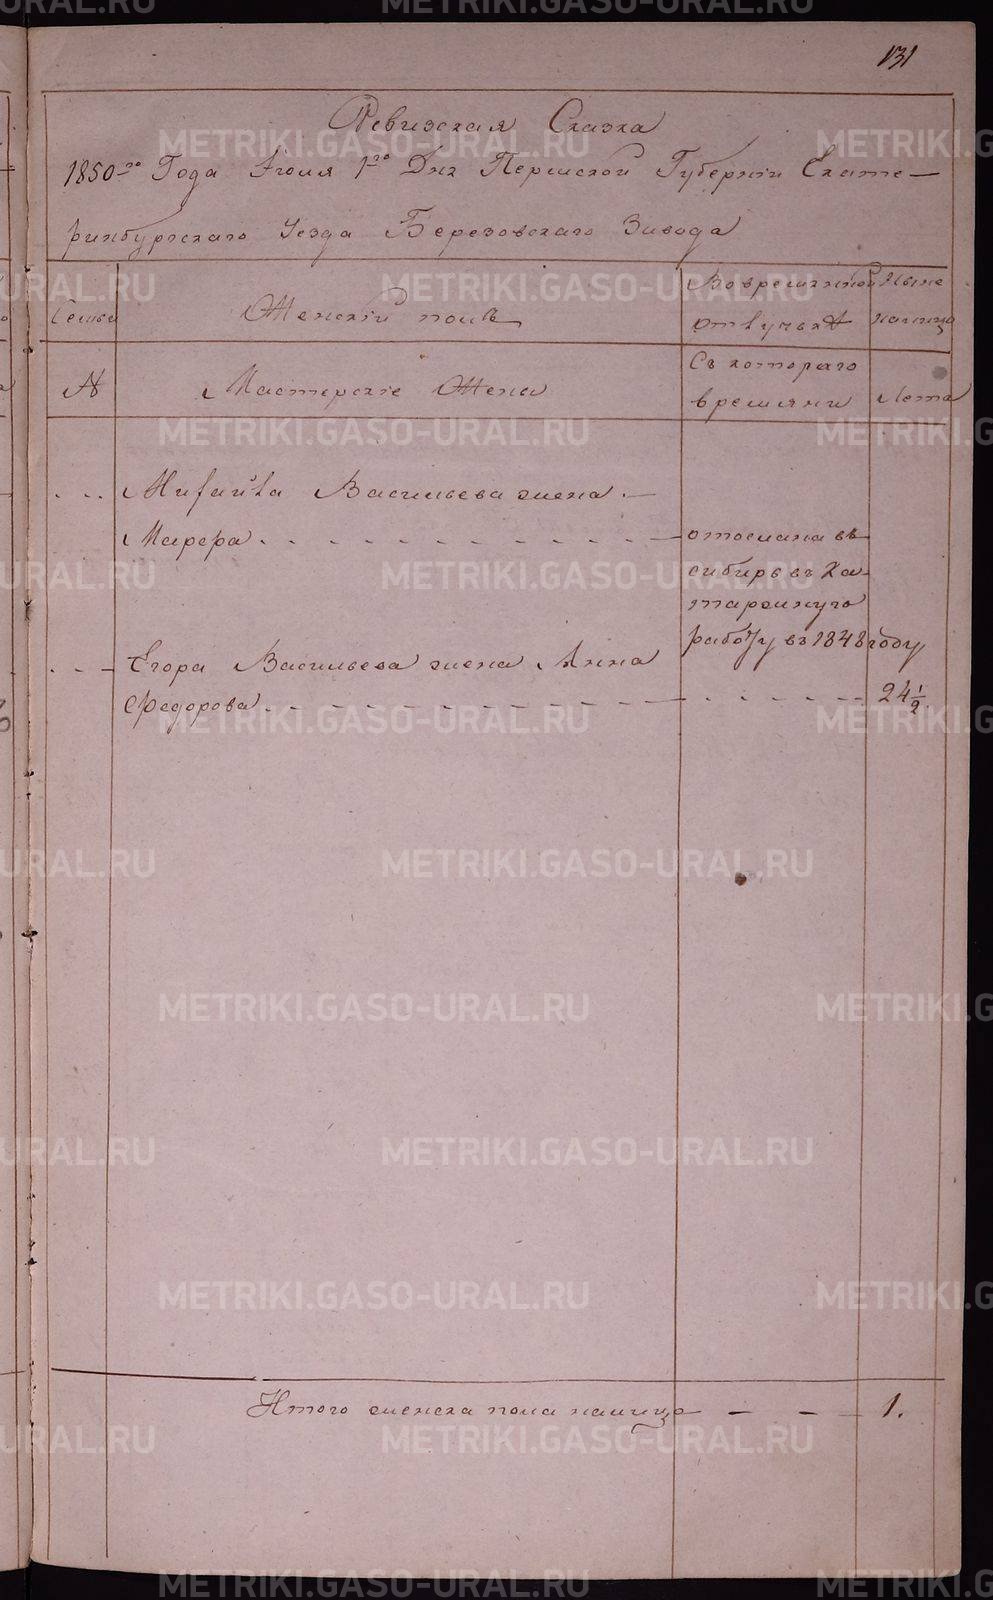 131
Ревизская Сказка
1850го Года Июля 1го Дня Пермской Губернiи Екате-
ринбургскаго Уезда Березовскаго Завода
Семьи
Женскiй полъ
Во временной отлучьке
Ныне налицо
№
Мастерскiе Жены
Съ котораго времяни
Лета
Васильева жена
Марфа
отослана въ
сибирь въ ка-
таржную
работу въ 1848 году
Егора Васильева жена Анна
Федорова
24 1/2
Итого женска пола налицо
1.
METRIKI.GASO-URAL.RU